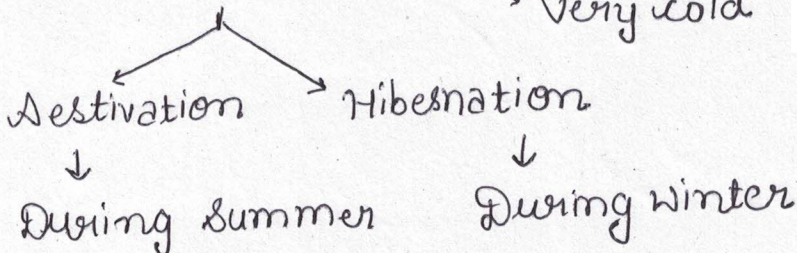 Very cold
Aestivation Hibernation
During summer During winter